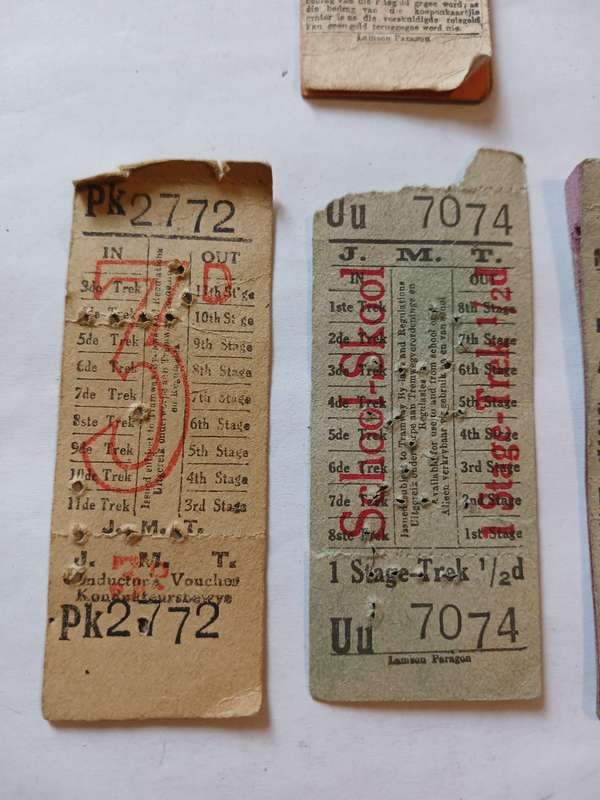 die bedrag van die koeponkaartjie
groter is as die verskuldigde reisgeld
kan geen geld teruggegee word nie.
Lamson Paragon
Pk 2772
3D
IN OUT
3de Trek 11th Stage
10th Stage
5de Trek 9th Stage
6de Trek 8th Stage
7de Trek 7th Stage
8ste Trek 6th Stage
9de Trek 5th Stage
10de Trek 4th Stage
11de Trek 3rd Stage
Issued subject to Tramway By-laws and Regulations
en Regulasies
J. M. T.
J. M. T.
Conductor's Voucher
Kondukteursbewys
Pk 2772
Uu 7074
J. M. T.
IN OUT
1ste Trek 8th Stage
2de Trek 7th Stage
3de Trek 6th Stage
4de Trek 5th Stage
5de Trek 4th Stage
6de Trek 3rd Stage
7de Trek 2nd Stage
8ste Trek 1st Stage
School-Skool
Issued subject to Tramway By-laws and Regulations
Uitgereik onderworpe aan Tramwegverordeninge en
Regulasies
Available for use to and from school only
Alleen verkrybaar vir gebruik na en van skool
1 Stage-Trek 1/2d
1 Stage-Trek 1/2d
Uu 7074
Lamson Paragon